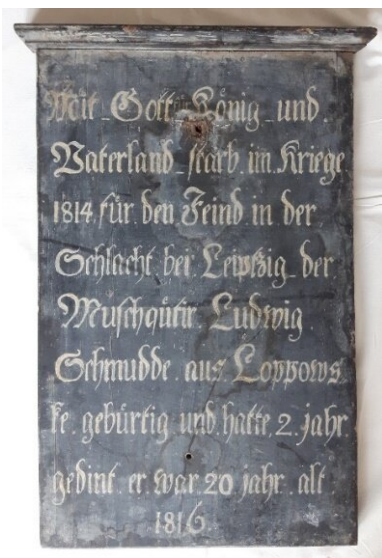 Mit Gott für König und
Vaterland starb im Kriege
1814 für den Feind in der
Schlacht bei Leipßig der
Muschqütir Ludwig
Schmudde aus Loppows
ke gebürtig und hatte 2. jahr
gedint er war 20 jahr alt
1816